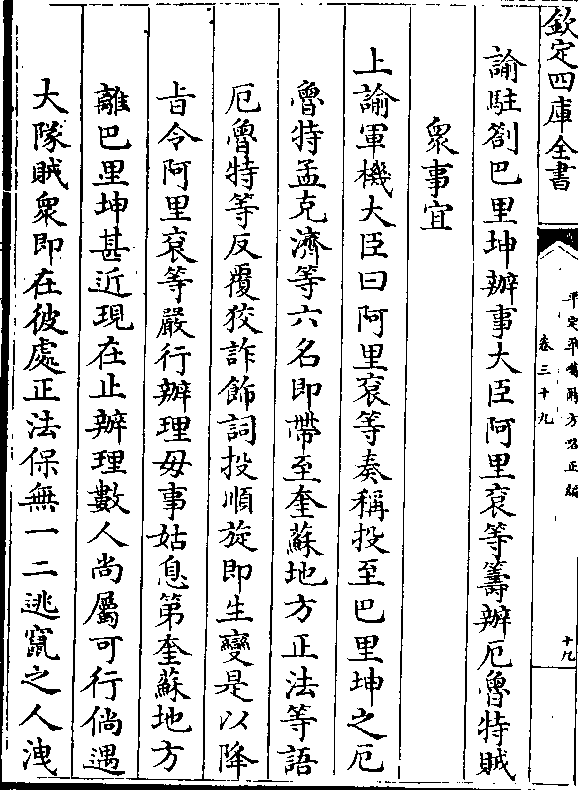 欽定四庫全書
平定凖噶爾方略正編
卷三十九
十九
諭駐劄巴里坤辦事大臣阿里衮等籌辦厄魯特賊
衆事宜
上諭軍機大臣曰阿里衮等奏稱投至巴里坤之厄
魯特孟克濟等六名即帶至奎蘇地方正法等語
厄魯特等反覆狡詐飾詞投順旋即生變是以降
旨令阿里衮等嚴行辦理毋事姑息第奎蘇地方
離巴里坤甚近現在止辦理數人尚屬可行倘遇
大隊賊衆即在彼處正法保無一二逃竄之人洩